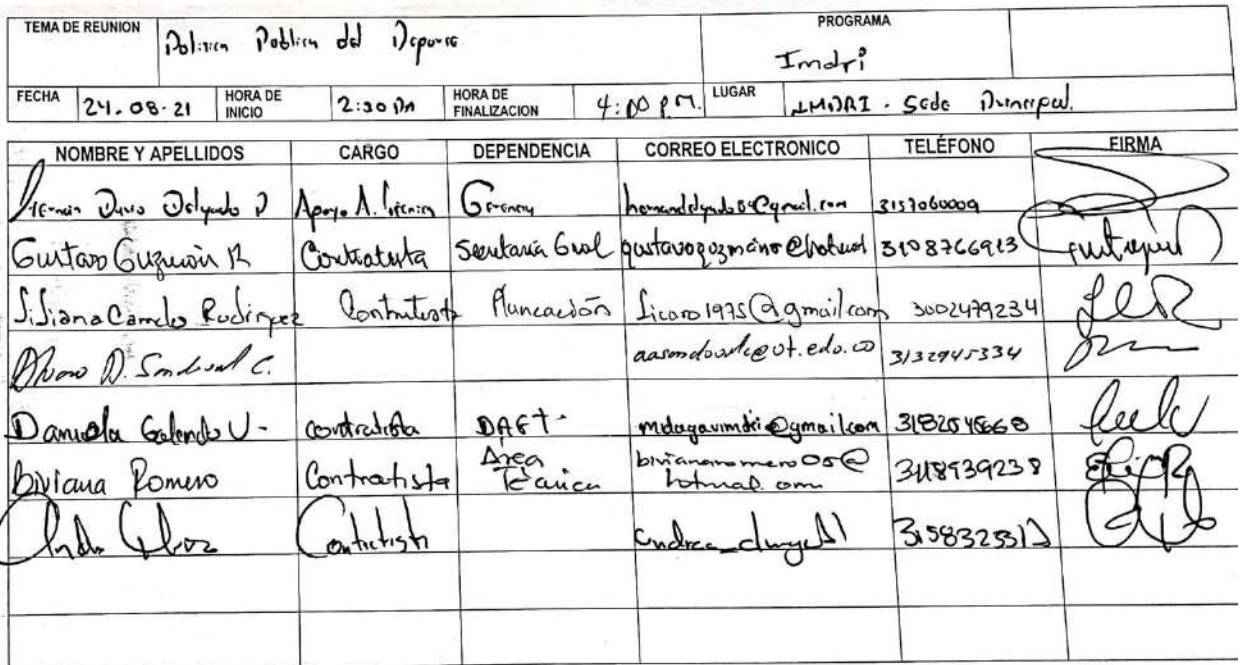 TEMA DE REUNION Politica Publica del Deporte PROGRAMA Imdri
FECHA 24-08-21 HORA DE INICIO 2:30 Pm HORA DE FINALIZACION 4:00 P.M. LUGAR IMDRI - Sede Principal.
NOMBRE Y APELLIDOS CARGO DEPENDENCIA CORREO ELECTRONICO TELÉFONO FIRMA
Dario Delgado Apoyo 3157060009
Gustavo Guzmán R Contratista Secretaria Gral gustavoguzmano@hotmail 3108766923
Liliana Canclo Rodriguez Contratista Planeación licaro1975@gmail.com 3002479234
Alvaro D. Sandoval C. aasandovalc@ut.edu.co 3132945334
Daniela Galindo U- contratista DAFT- mdagavimdri@gmail.com
Biviana Romero Contratista Área Técnica bivianaromero05@hotmail.com 3118939238
Contratista